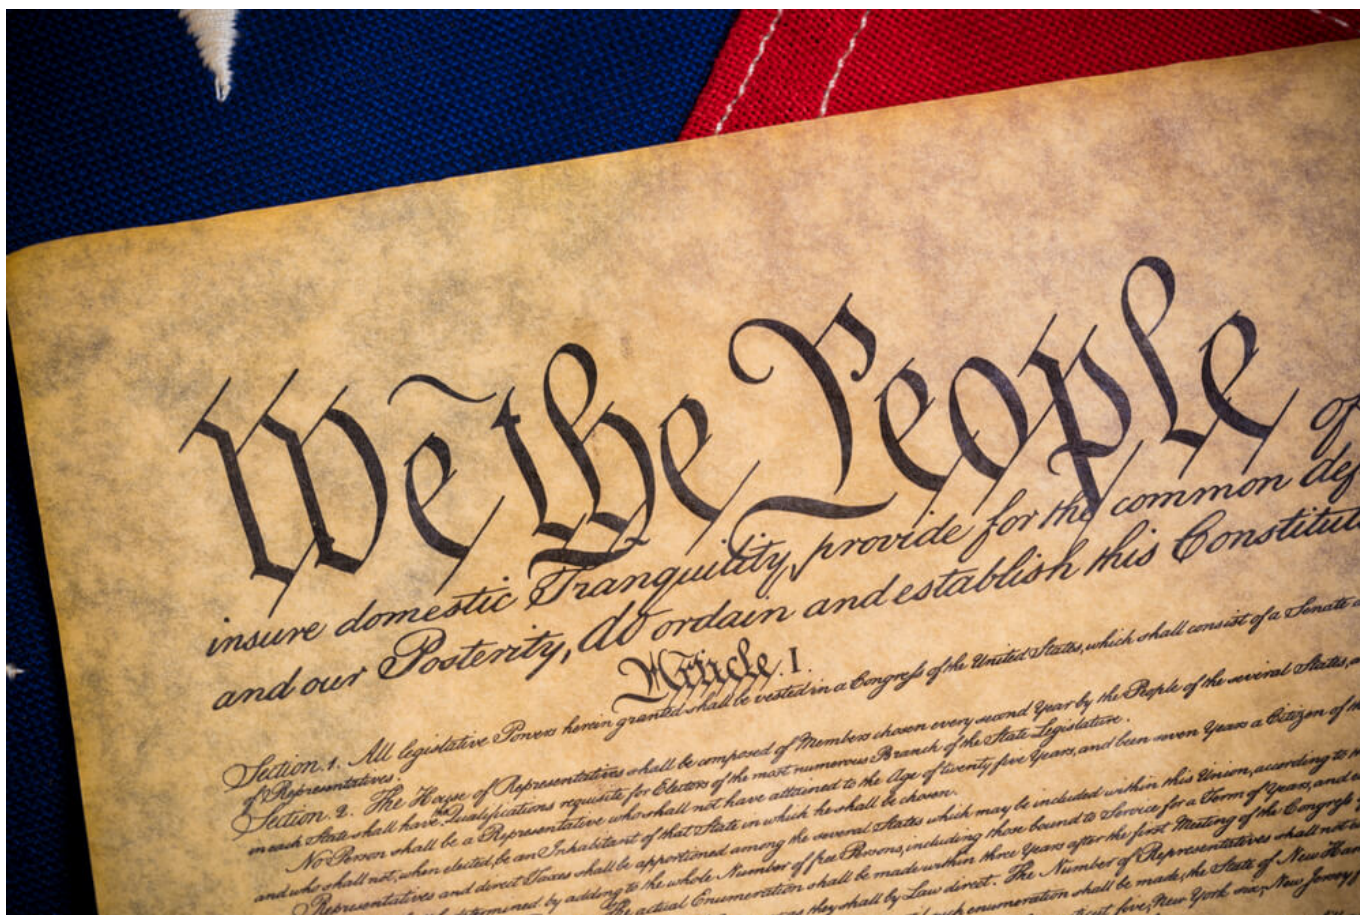 We the People of
insure domestic Tranquility, provide for the common def
and our Posterity, do ordain and establish this Constitut
Article. I.
Section. 1. All legislative Powers herein granted shall be vested in a Congress of the United States, which shall consist of a Senate
of Representatives.
Section. 2. The House of Representatives shall be composed of Members chosen every second Year by the People of the several States,
in each State shall have the Qualifications requisite for Electors of the most numerous Branch of the State Legislature.
No Person shall be a Representative who shall not have attained to the Age of twenty five Years, and been seven Years a Citizen of the
and who shall not, when elected, be an Inhabitant of that State in which he shall be chosen.
Representatives and direct Taxes shall be apportioned among the several States which may be included within this Union, according to
determined by adding to the whole Number of free Persons, including those bound to Service for a Term of Years, and
The actual Enumeration shall be made within three Years after the first Meeting of the Congress
they shall by Law direct. The Number of Representatives shall not
such enumeration shall be made, the State of New Ham
five, New York six, New Jersey